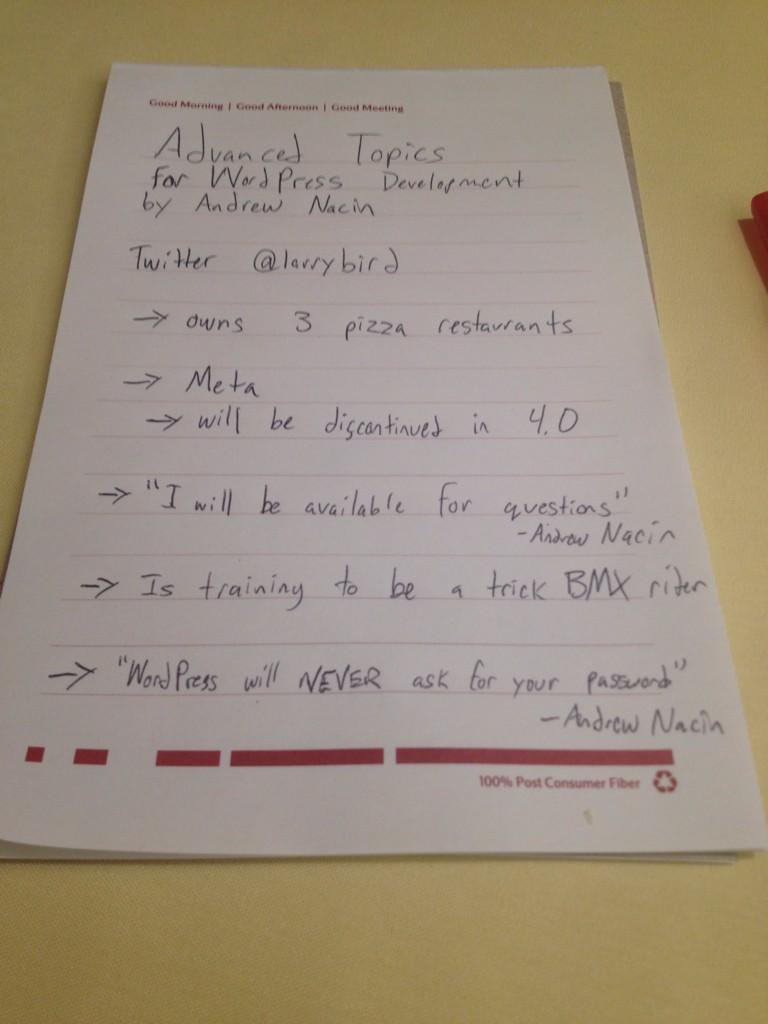 Good Morning | Good Afternoon | Good Meeting
Advanced Topics
for WordPress Development
by Andrew Nacin
Twitter @larrybird
→ owns 3 pizza restaurants
→ Meta
→ will be discontinued in 4.0
→ "I will be available for questions"
- Andrew Nacin
→ Is training to be a trick BMX rider
→ "WordPress will NEVER ask for your password"
- Andrew Nacin
100% Post Consumer Fiber